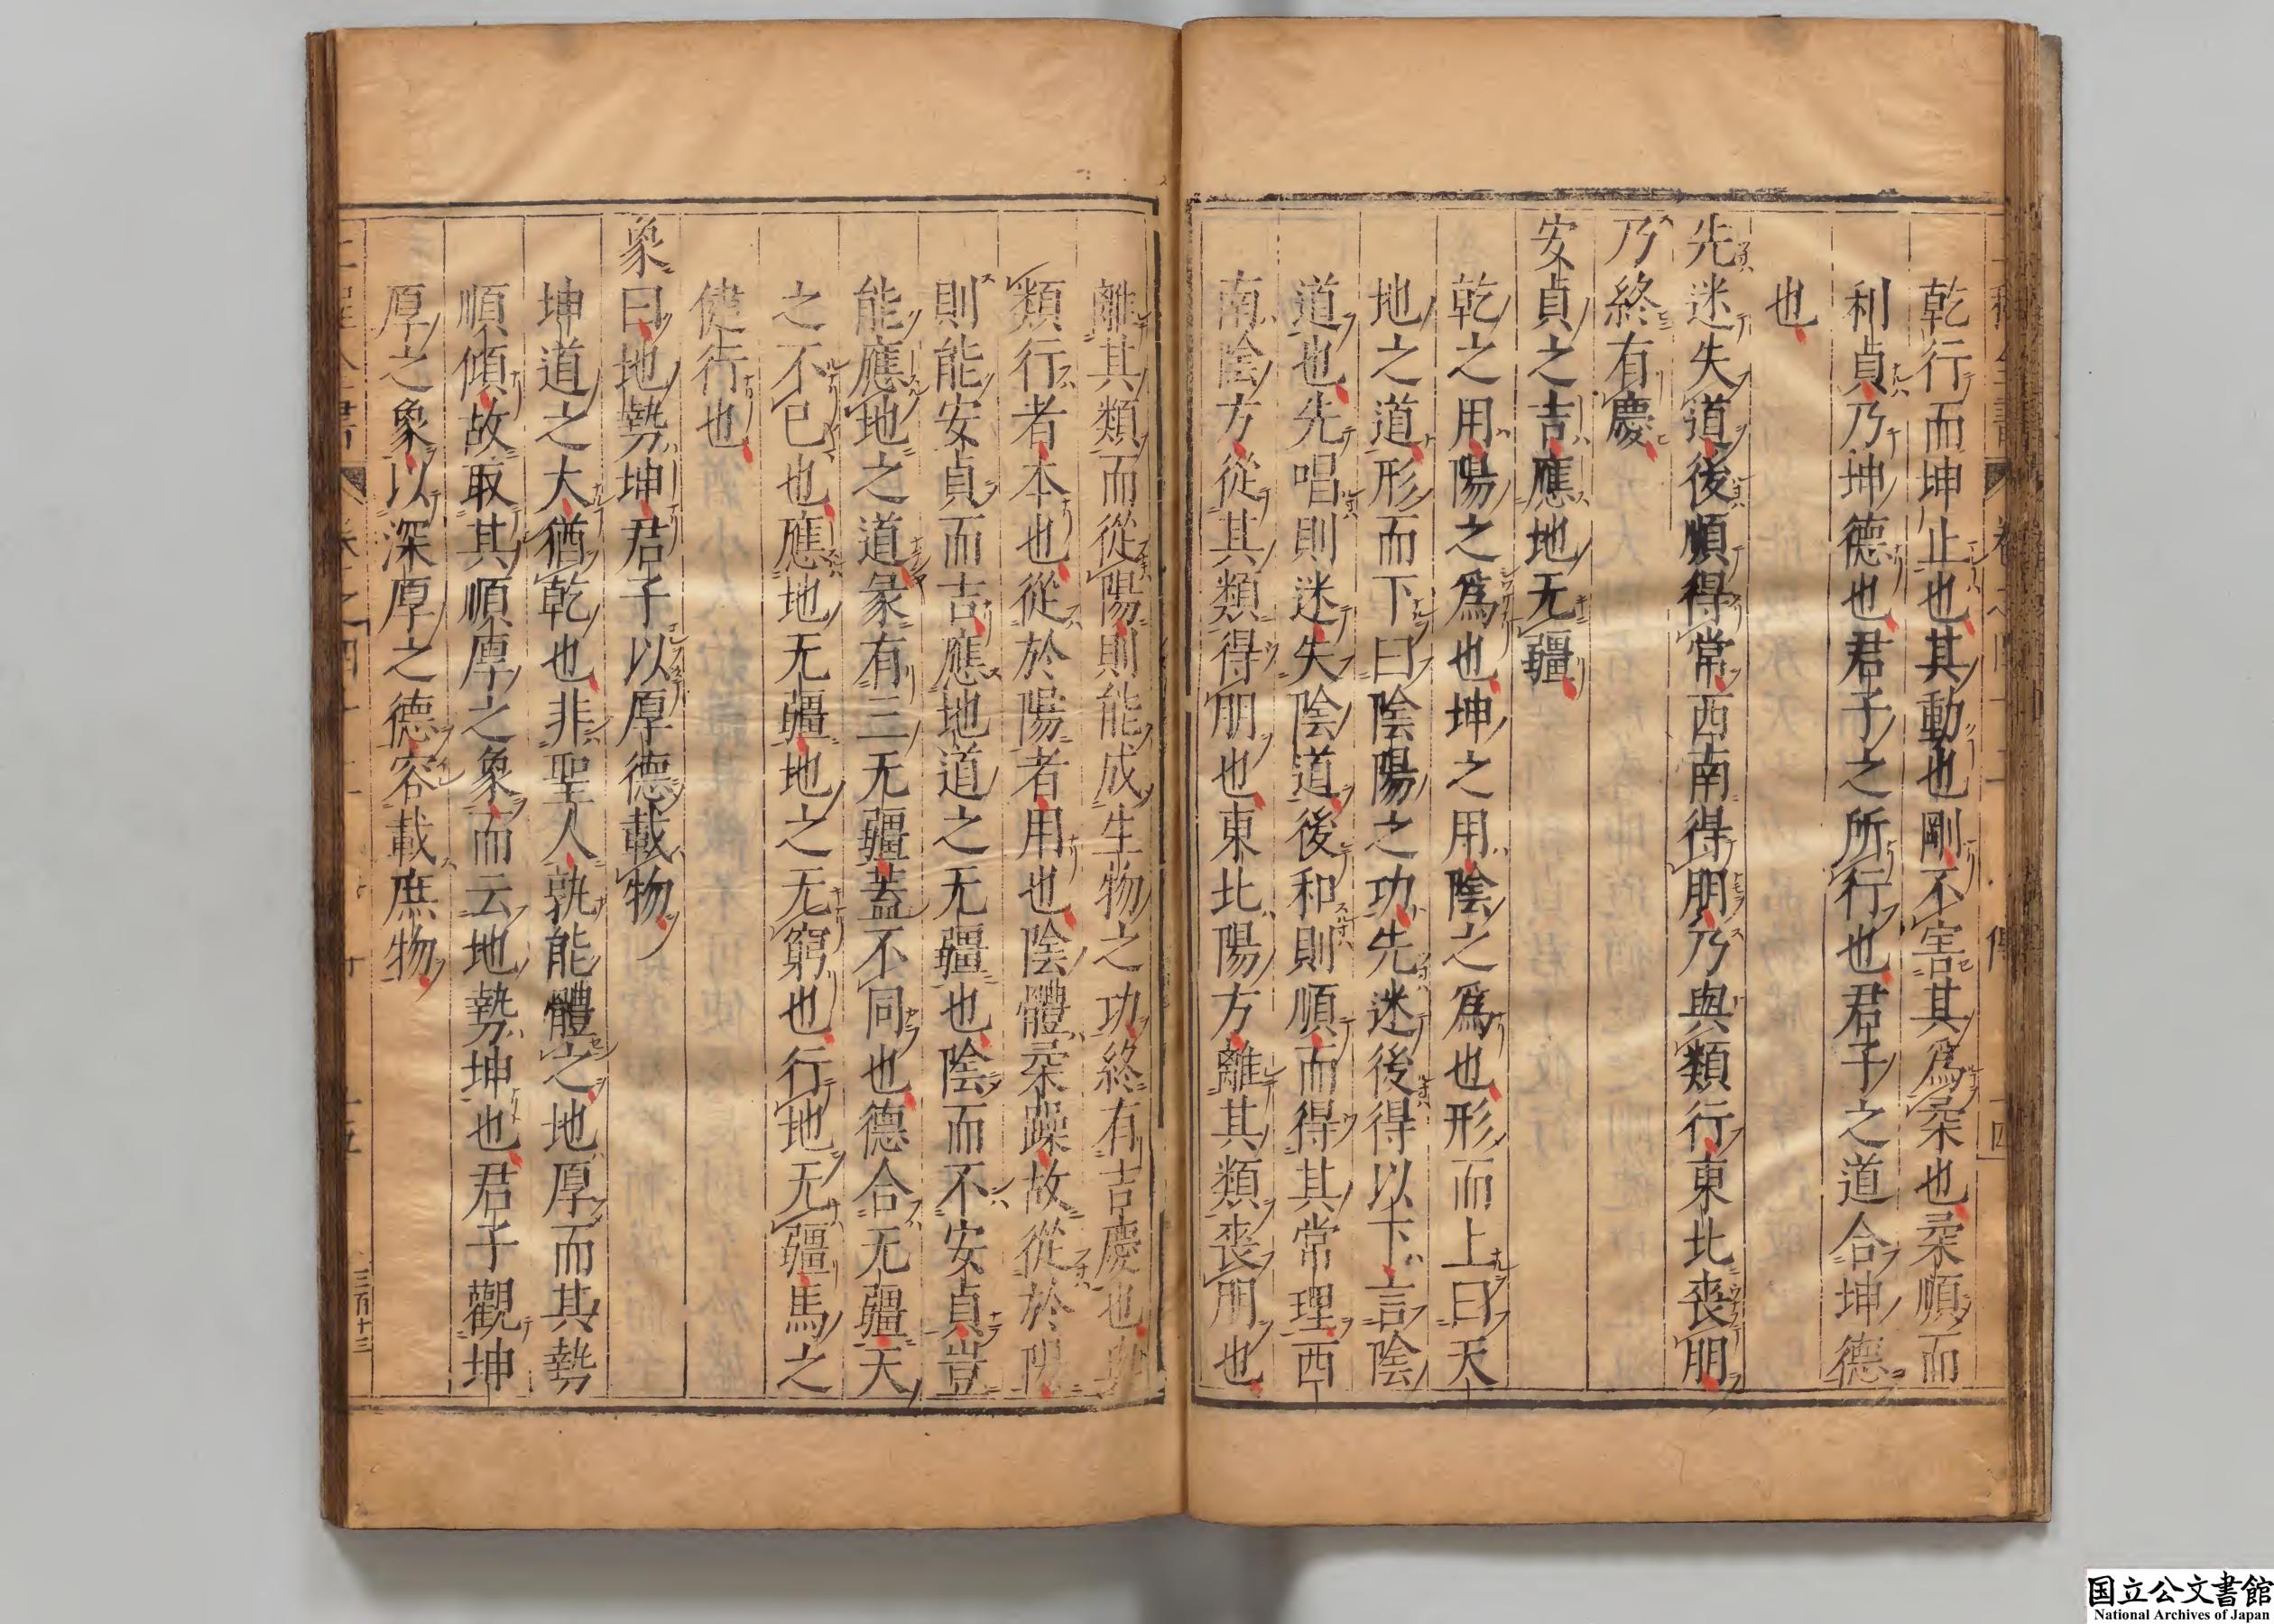 乾行而坤止也其動也剛不害其爲柔也柔順而
利貞乃坤德也君子之所行也君子之道合坤德
也
先迷失道後順得常西南得朋乃與類行東北喪朋
乃終有慶
安貞之吉應地无疆
乾之用陽之爲也坤之用陰之爲也形而上曰天
地之道形而下曰陰陽之功先迷後得以下言陰
道也先唱則迷失陰道後和則順而得其常理西
南陰方從其類得朋也東北陽方離其類喪朋也
離其類而從陽則能成生物之功終有吉慶也與
類行者本也從於陽者用也陰體柔躁故從於陽
則能安貞而吉應地道之无疆也陰而不安貞豈
能應地之道彖有三无疆蓋不同也德合无疆天
之不已也應地无疆地之无窮也行地无疆馬之
健行也
象曰地勢坤君子以厚德載物
坤道之大猶乾也非聖人孰能體之地厚而其勢
順傾故取其順厚之象而云地勢坤也君子觀坤
厚之象以深厚之德容載庶物
三百十三
国立公文書館
National Archives of Japan